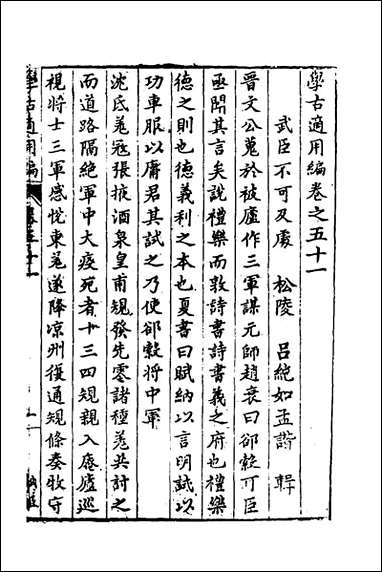 學古適用編卷之五十一
武臣不可及處　松陵　呂純如孟諧　輯
晉文公蒐於被廬作三軍謀元帥趙衰曰郤縠可臣
亟聞其言矣説禮樂而敦詩書詩書義之府也禮樂
德之則也德義利之本也夏書曰賦納以言明試以
功車服以庸君其試之乃使郤縠將中軍
沈氐羌寇張掖酒泉皇甫規發先零諸種羌共討之
而道路隔絶軍中大疫死者十三四規親入菴廬巡
視將士三軍感悦東羌遂降凉州復通規條奏牧守
學古適用編